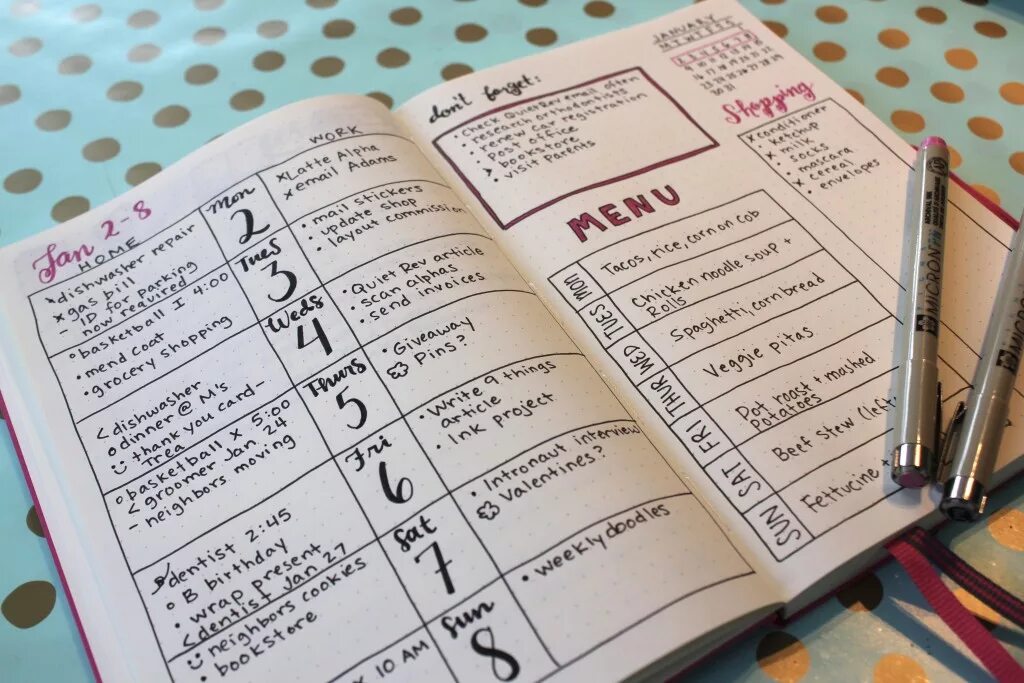 Jan 2-8
HOME
WORK
dishwasher repair
× gas bill
- ID for parking
now required
Mon
2
× Latte Alpha
× email Adams
○ basketball I 4:00
• mend coat
• grocery shopping
Tues
3
• mail stickers
• update shop
• layout commission
< dishwasher
○ dinner @ M's
☺ thank you card -
Trea
Weds
4
• Quiet Rev article
• scan alphas
• send invoices
○ basketball × 5:00
< groomer Jan. 24
- neighbors moving
Thurs
5
• Giveaway
Pins?
dentist 2:45
○ B birthday
• wrap present
< dentist Jan 27
☺ neighbors cookies
• bookstore
Fri
6
• Write 9 things
article
• Ink project
× 10 AM
Sat
7
• Intronaut interview
Valentines?
Sun
8
• weekly doodles
don't forget:
• Check Quiet Rev email often
• research orthodontists
• renew car registration
• post office
• bookstore
> visit parents
JANUARY
M T W T F S S
1
2 3 4 5 6 7 8
9 10 11 12 13 14 15
16 17 18 19 20 21 22
23 24 25 26 27 28 29
30 31
Shopping
× conditioner
• ketchup
× milk
• socks
• mascara
× cereal
• envelopes
MENU
MON
Tacos, rice, corn on cob
TUES
Chicken noodle soup +
Rolls
WED
Spaghetti, corn bread
THUR
Veggie pitas
FRI
Pot roast + mashed
Potatoes
SAT
Beef Stew (left
SUN
Fettucine +
MICRON
MICRON